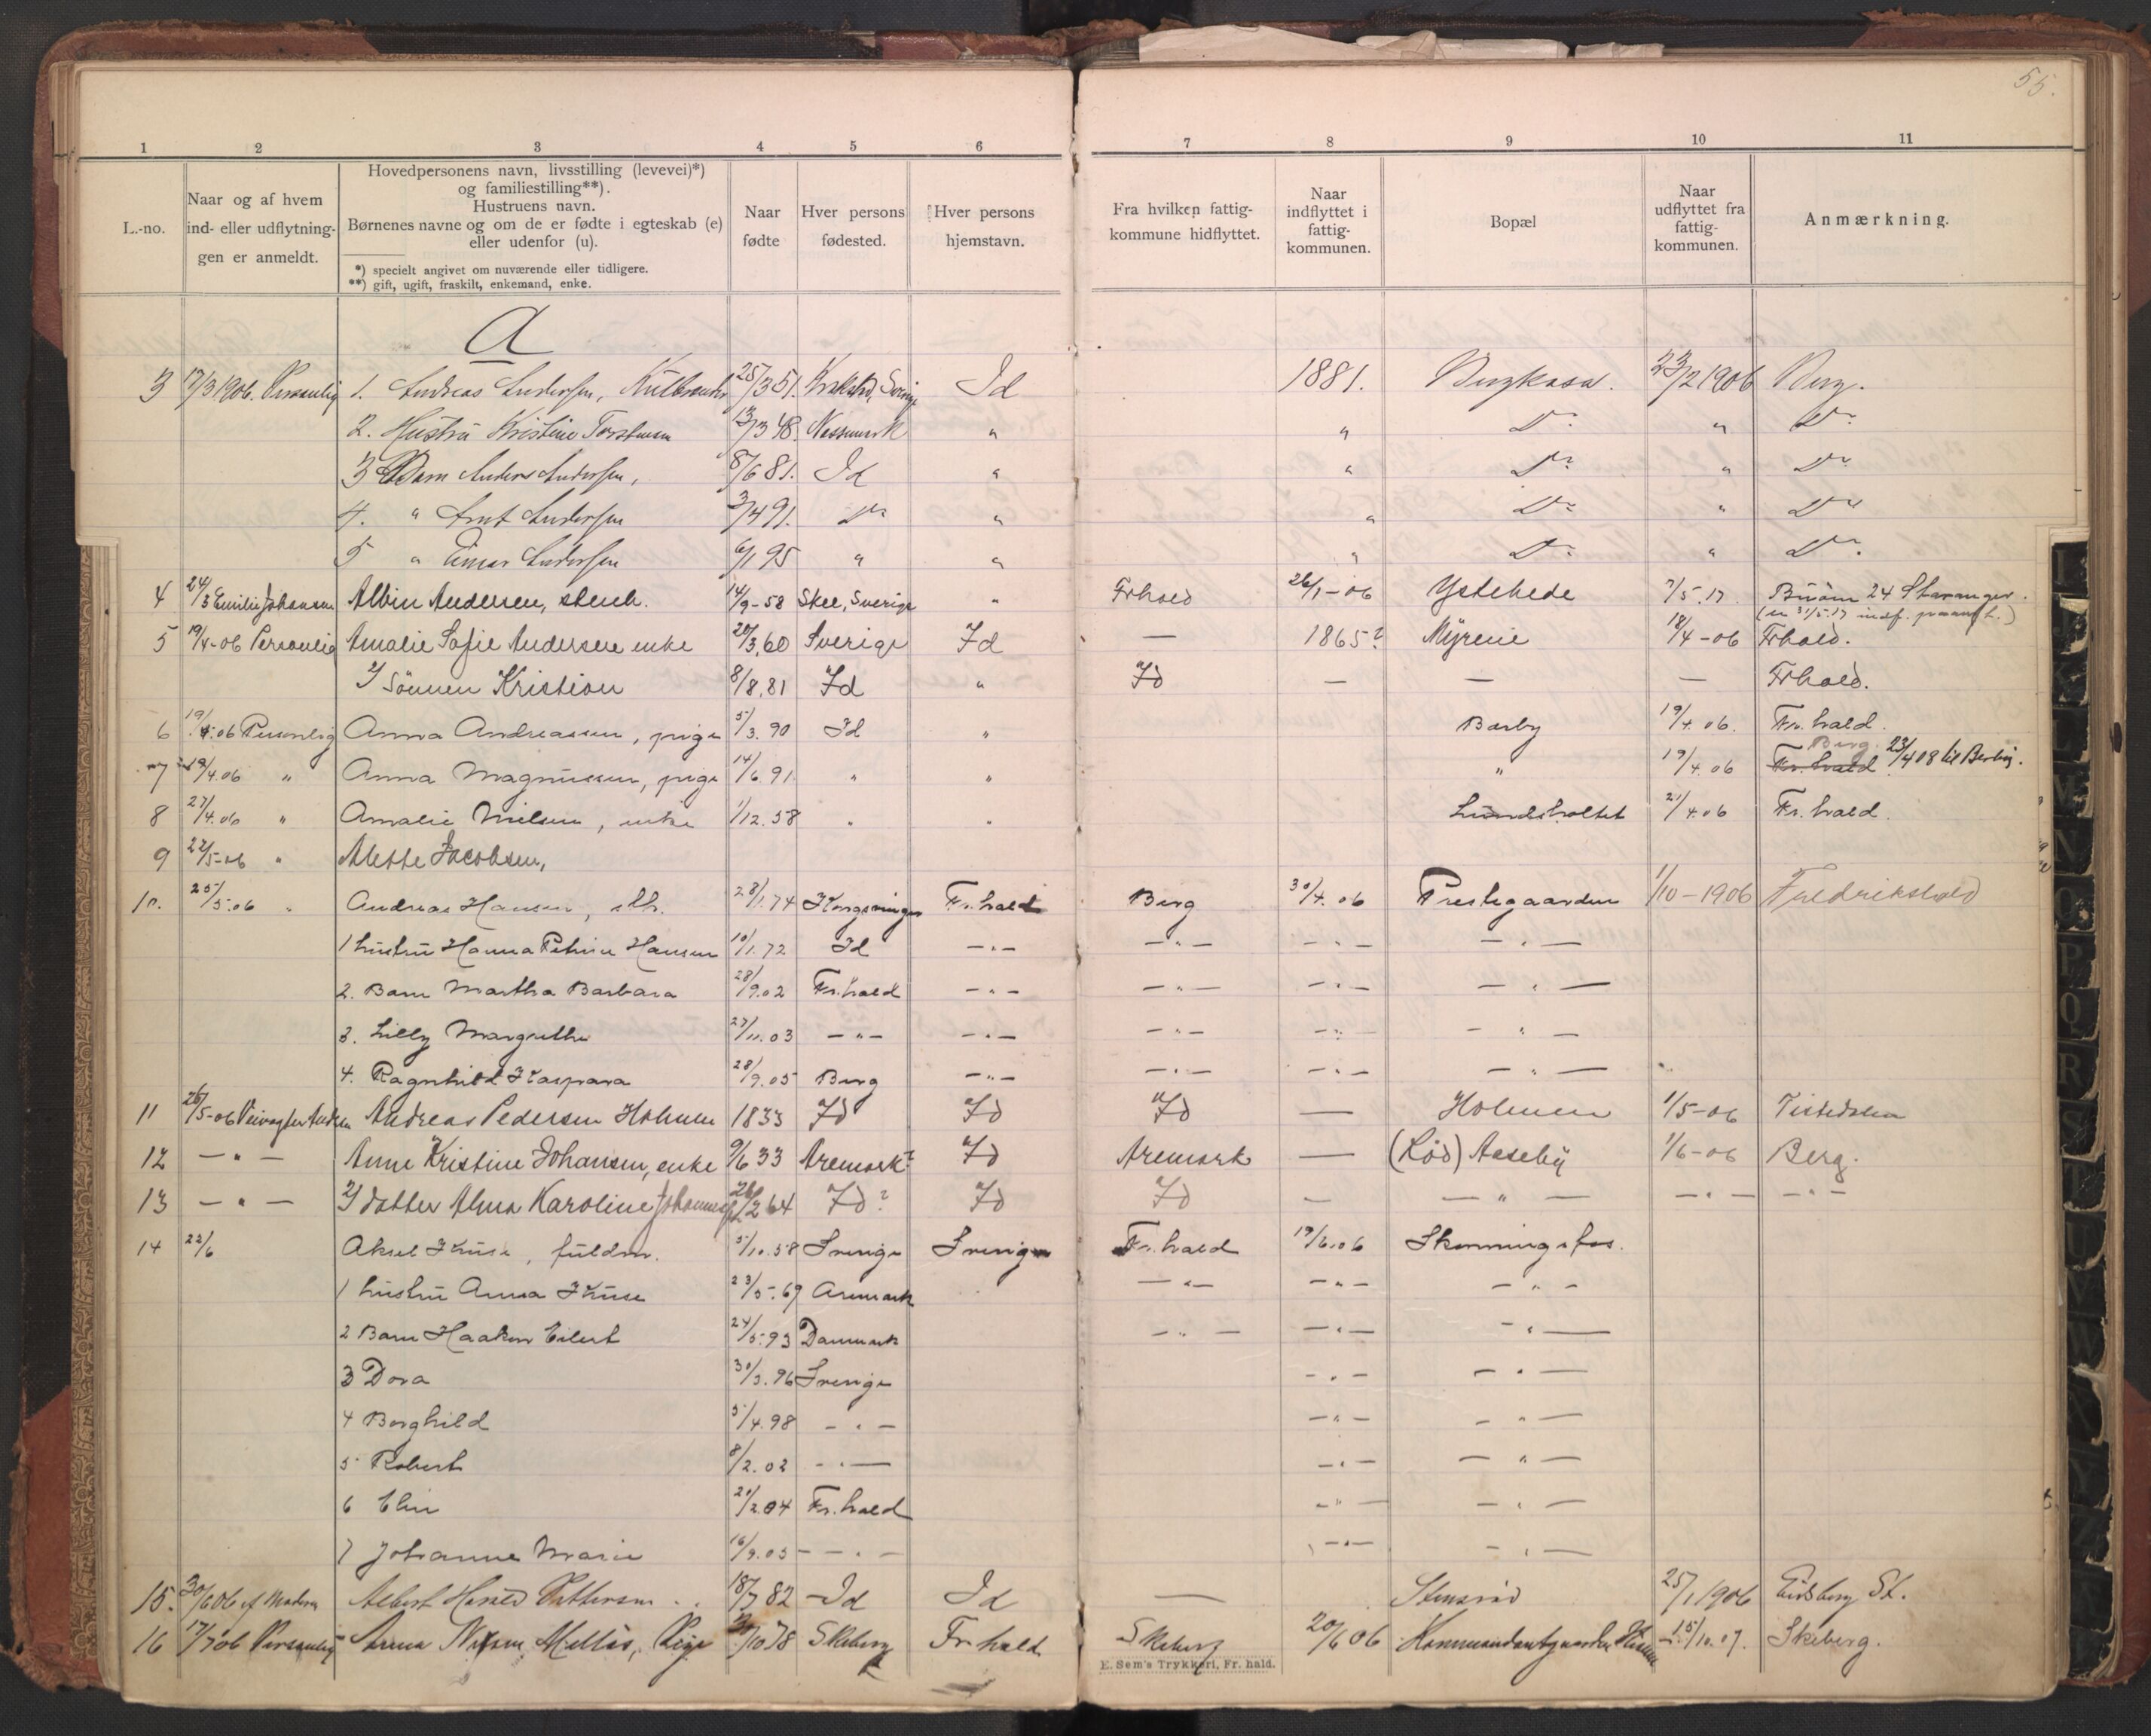 55.
1 2 3 4 5 6 7 8 9 10 11
L.-no.
Naar og af hvem
ind- eller udflytnin-
gen er anmeldt.
Hovedpersonens navn, livsstilling (levevei)*)
og familiestilling**).
Hustruens navn.
Børnenes navne og om de er fødte i egteskab (e)
eller udenfor (u).
*) specielt angivet om nuværende eller tidligere.
**) gift, ugift, fraskilt, enkemand, enke.
Naar
fødte
Hver persons
fødested.
Hver persons
hjemstavn.
Fra hvilken fattig-
kommune hidflyttet.
Naar
indflyttet i
fattig-
kommunen.
Bopæl
Naar
udflyttet fra
fattig-
kommunen.
Anmærkning.
A
3 17/3 1906. Personlig 1. Andreas Andersen, 25/3 51. Sverige Id 1881. 23/2 1906 Berg.
2. Hustru Kristine 13/3 48. " " Do " Do
3 Barn Anders Andersen, 8/6 81. Id " " Do " Do
4. " Arnt Andersen 3/4 91. Do " " Do " Do
5 " Einar Andersen 6/1 95 " " " Do " Do
4 24/3 Emilie Johansen Albin Andersen, stenh. 14/9-58 Skee, Sverige " Frhald 26/1-06 Ystehede 7/5.17 24 Stavanger.
5 19/4-06 Personlig Amalie Sofie Andersen enke 20/3.60 Sverige Id — 1865? Myrene 18/4-06 Frhald.
Sønnen Kristian 8/8.81 Id " Id — — — Frhald.
6 19/4.06 Personlig Anna Andreassen, pige 5/3.90 Id " Barby 19/4.06. Fr.hald.
7 19/4.06 " Anna Magnussen, pige 14/6.91 " " " 19/4.06 Fr.hald Berg 23/4 08 til Berby.
8 21/4.06 " Amalie Nilsen, enke 1/12.58 " " Lundsholtet 21/4.06 Fr.hald.
9 22/5-06 " Alette Jacobsen,
10. 25/5.06 " Andreas Hansen, 28/1.74 Kongsvinger Fr.hald Berg 30/4.06 Prestegaarden 1/10-1906 Fredrikshald
1 hustru Hanna Petrine Hansen 10/1.72 Id —"— —"— —"— —"—
2. Barn Martha Barbara 28/9.02 Fr.hald —"— —"— —"— —"—
3. Lilly Margrethe 27/11.03 —"— —"— —"— —"— —"—
4. Ragnhild Kaspara 28/9.05 Berg —"— —"— —"— —"—
11 26/5-06 Andreas Pedersen Holmen 1833 Id Id Id — Holmen 1/5-06 Tistedalen
12 —"— Anne Kristine Johansen, enke 9/6 33 Aremark? Id Aremark — (Lød) Aaseby 1/6-06 Berg.
13 —"— datter Alma Karoline 26/2 64 Id? Id Id — —"— —"— —"—
14 22/6 Aksel Kruse, fuldm. 5/10.58 Sverige Sverige Fr.hald 19/6.06 Skonningsfos.
1 hustru Anna Kruse 23/5.69 Aremark —"— —"— —"—
2 Barn Haakon Eilert 24/5.93 Danmark —"— —"— —"—
3 Dora 30/3.96 Sverige —"— —"—
4 Borghild 5/4.98 —"— —"— —"—
5 Robert 8/2.02 —"— —"— —"—
6 Elin 20/2.04 Fr.hald —"— —"—
7 Johanne Marie 16/9.05 —"— —"— —"—
15. 30/6 06 af Moderen Albert Harald Pettersen 18/7 82 Id Id — Stensrød 25/1 1906 Eidsberg St.
16 17/7 06 Personlig Anna Pige 10 78 Skeberg Fr.hald Skeberg 20/6 06 15/10.07. Skeberg.
E. Sem's Trykkeri, Fr. hald.